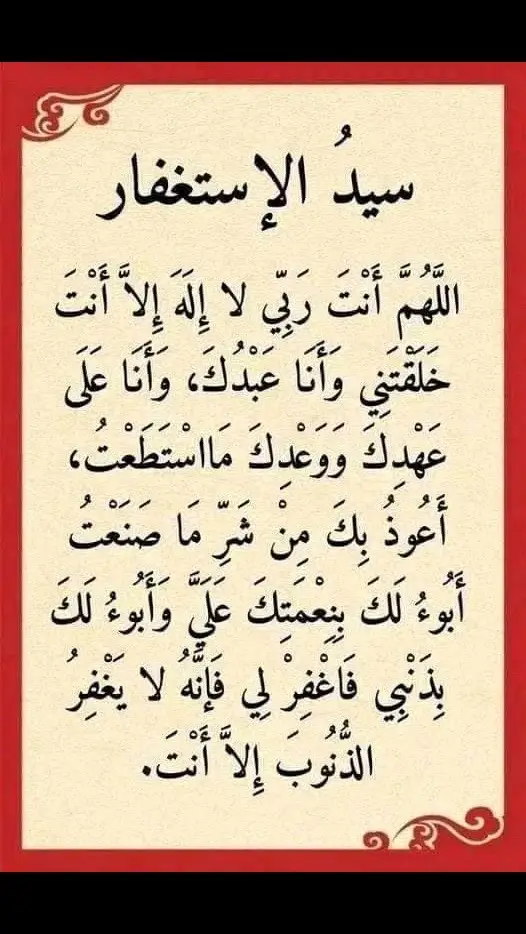 سيدُ الإستغفار
اللَّهُمَّ أَنْتَ رَبِّي لا إِلَهَ إِلاَّ أَنْتَ
خَلَقْتَنِي وَأَنَا عَبْدُكَ، وَأَنَا عَلَى
عَهْدِكَ وَوَعْدِكَ مَااسْتَطَعْتُ،
أَعُوذُ بِكَ مِنْ شَرِّ مَا صَنَعْتُ
أَبُوءُ لَكَ بِنِعْمَتِكَ عَلَيَّ وَأَبُوءُ لَكَ
بِذَنْبِي فَاغْفِرْ لِي فَإِنَّهُ لا يَغْفِرُ
الذُّنُوبَ إِلاَّ أَنْتَ.